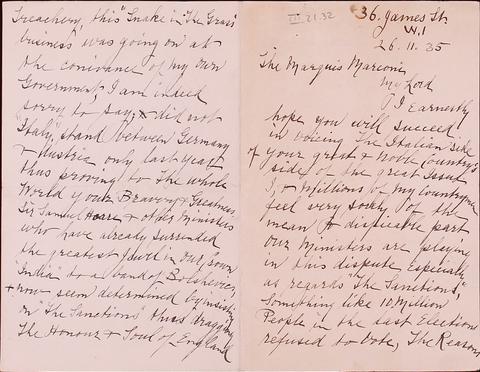 36. James St
W.1
26.11.35
The Marquis Marconi
My Lord
I Earnestly
hope you will succeed
in voicing The Italian side
of your great & Noble Country's
side of the great Issue
I, & Millions of my Countrymen
feel very sorry of the
mean & dispicable part
our Ministers are playing
in this dispute especially
as regards "The Sanctions,"
Something like 10, Million
People in the last Elections
refused to Vote, The Reason
III.21.32
Treachery, this "Snake in The Grass
business" was going on at
the conivance of my own
Government, I am indeed
sorry to say, & did not
"Italy," stand between Germany
& Austria only last year
thus proving to The whole
World your Bravery & Greatness,
Sir Samuel Hoare & other Ministers
who have already surrended
the greatest Jewel in our Crown
"India" to a band of Bolshevics,
& now seem determined by insisting
on "The Sanctions" thus dragging
The Honour & Soul of England